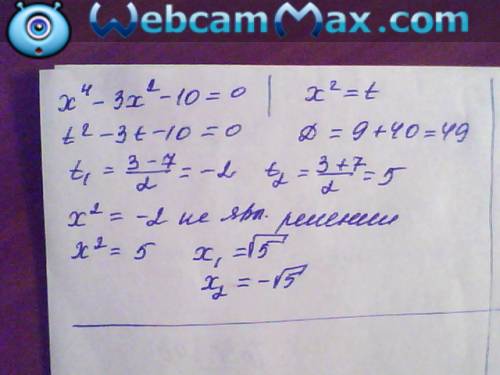 WebcamMax.com
x⁴ - 3x² - 10 = 0 | x² = t
t² - 3t - 10 = 0 D = 9 + 40 = 49
t₁ = (3 - 7)/2 = -2 t₂ = (3 + 7)/2 = 5
x² = -2 не явл. решением
x² = 5 x₁ = √5
x₂ = -√5